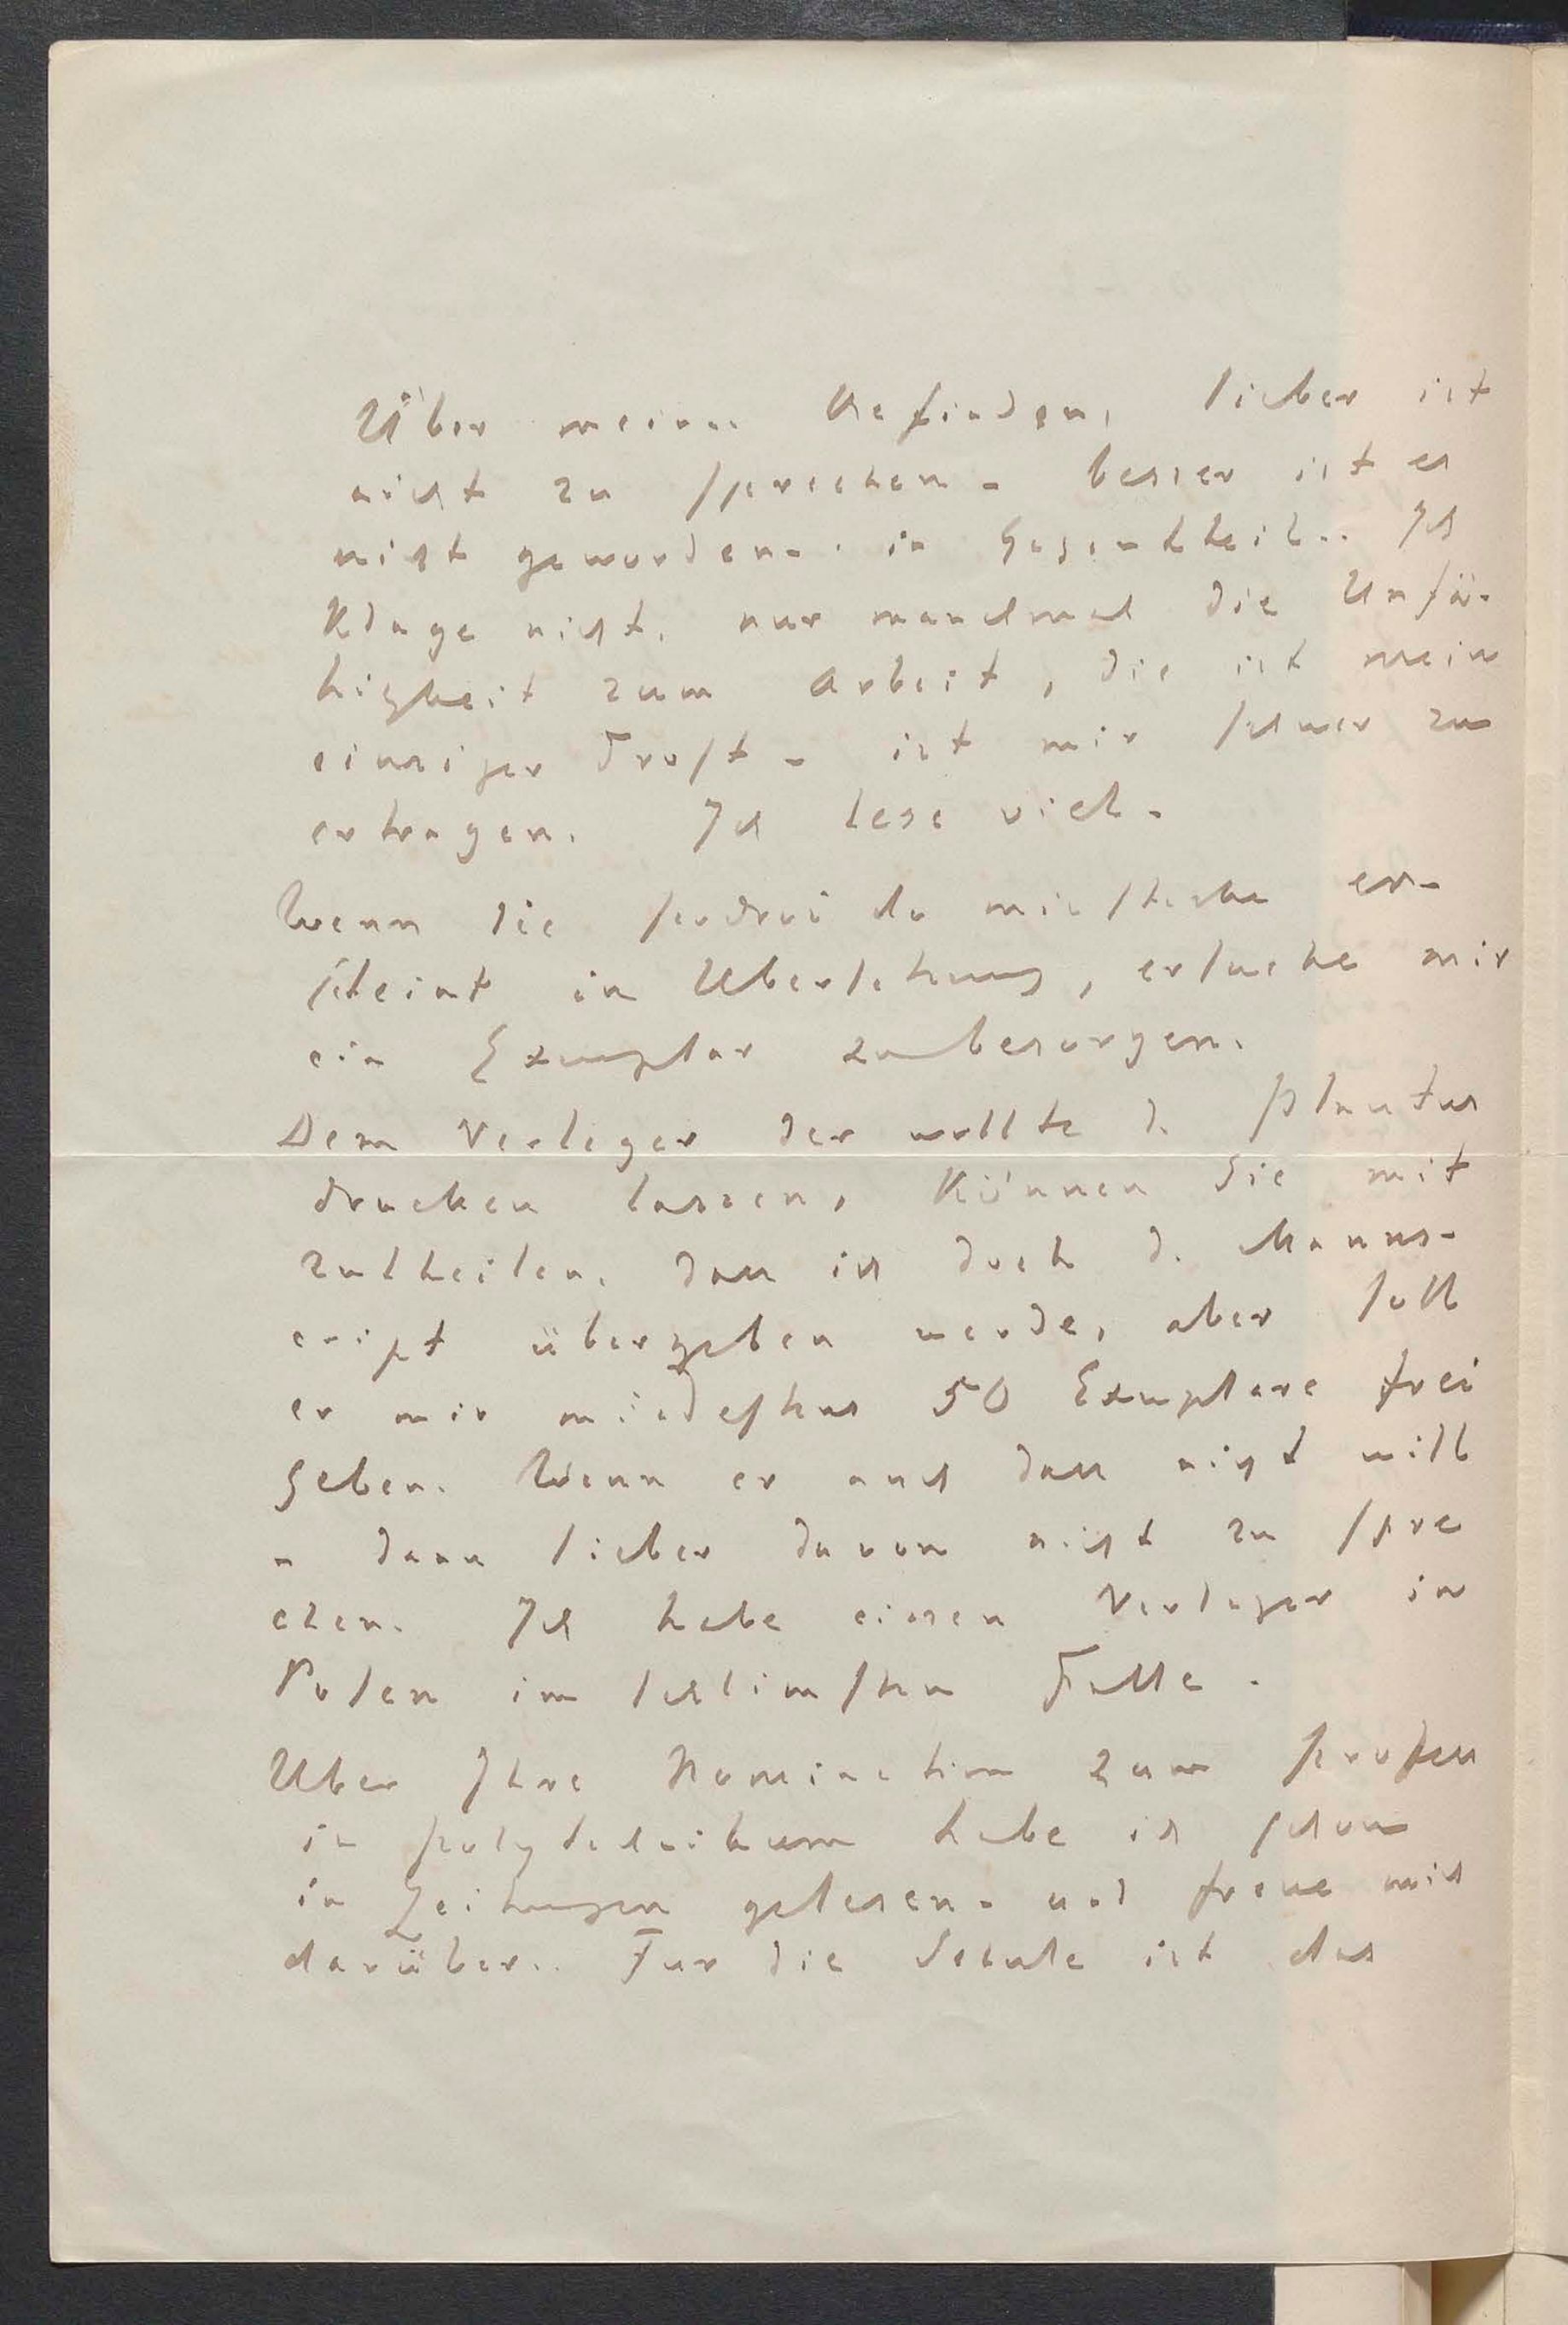 Über meine Befinden, lieber ist
nicht zu sprechen - besser ist es
nicht geworden.. in Gegentheil.. Ich
klage nicht, nur manchmal die Unfä-
higkeit zum Arbeit, die ist mein
einziger Trost - ist mir schwer zu
ertragen. Ich lese viel.
Wenn die do erscheint er-
scheint in Übersetzung, ersuche mir
ein Exemplar zu besorgen.
Dem Verleger der wollte d. Plautus
drucken lassen, können Sie mit
zutheilen, dass ich doch d. Manus-
cript übergeben werde, aber soll
er mir mindestens 50 Exemplare frei
geben. Wenn er auch dass nicht will
- dann lieber davon nicht zu spre
chen. Ich habe einen Verleger in
Polen im schlimsten Falle.
Uber Ihre Nomination zum Profess
in Polytechnikum habe ich schon
in Zeitungen gelesen - und freue mich
darüber.. Fur die Schule ist das